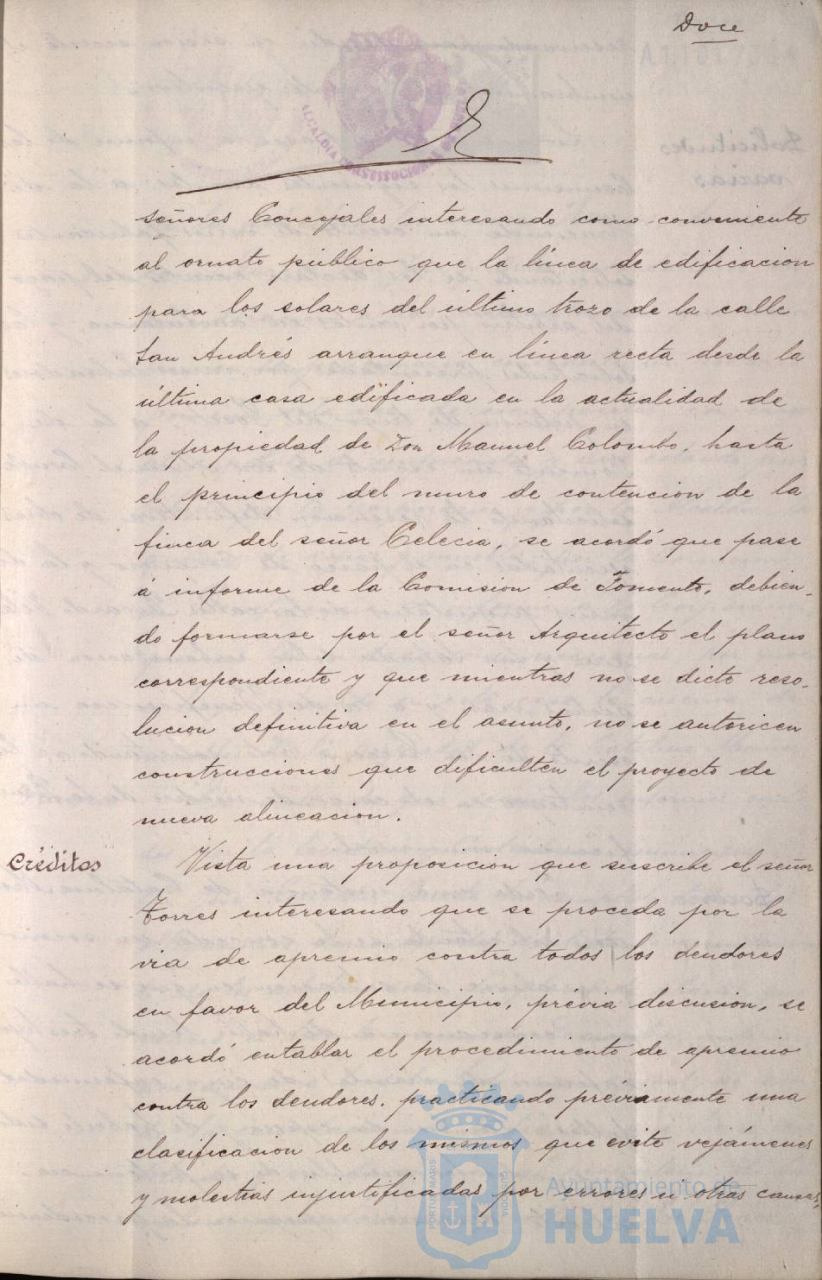 Doce
ALCALDIA CONSTITUCIONAL DE
señores Concejales interesando como conveniente
al ornato público que la línea de edificacion
para los solares del último trozo de la calle
San Andrés arranque en línea recta desde la
última casa edificada en la actualidad de
la propiedad de Don Manuel Colombo, hasta
el principio del muro de contencion de la
finca del señor Celecia, se acordó que pase
á informe de la Comision de Fomento, debien-
do formarse por el señor Arquitecto el plano
correspondiente y que mientras no se dicte reso-
lucion definitiva en el asunto, no se autoricen
construcciones que dificulten el proyecto de
nueva alineacion.
Créditos
Vista una proposicion que suscribe el señor
Torres interesando que se proceda por la
via de apremio contra todos los deudores
en favor del Municipio, prévia discusion, se
acordó entablar el procedimiento de apremio
contra los deudores, practicando préviamente una
clasificacion de los mismos que evite vejámenes
y molestias injustificadas por errores ú otras causas,
Ayuntamiento de
HUELVA